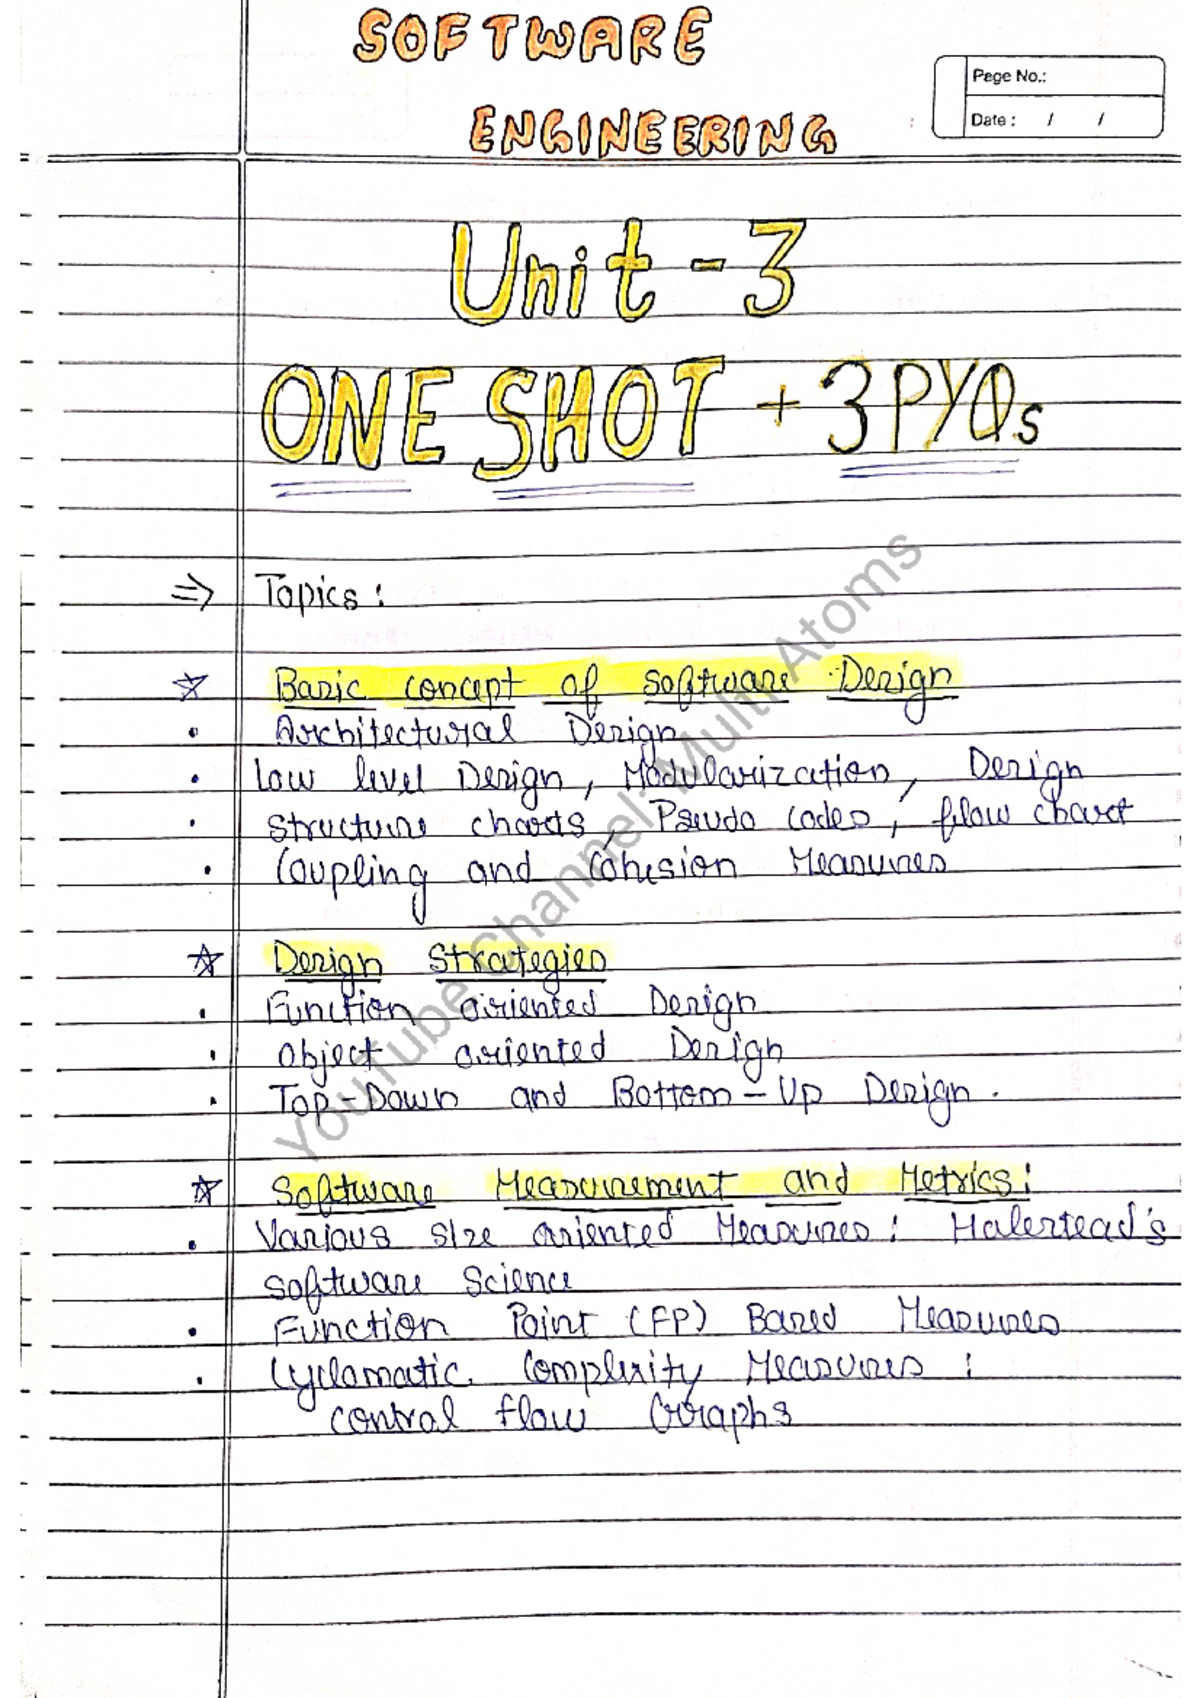 SOFTWARE
ENGINEERING
Page No.:
Date : / /
Unit - 3
ONE SHOT + 3 PYQs
⇒ Topics :
☆ Basic concept of software Design
• Architectural Design
• Low level Design, Modularization, Design
• Structure charts, Pseudo codes, flow chart
• Coupling and Cohesion Measures
☆ Design Strategies
• Function oriented Design
• Object oriented Design
• Top-Down and Bottom-Up Design.
☆ Software Measurement and Metrics :
• Various size oriented Measures : Halestead's
Software Science
• Function Point (FP) Based Measures
• Cyclomatic Complexity Measures :
control flow Graphs
YouTube Channel: Multi Atoms